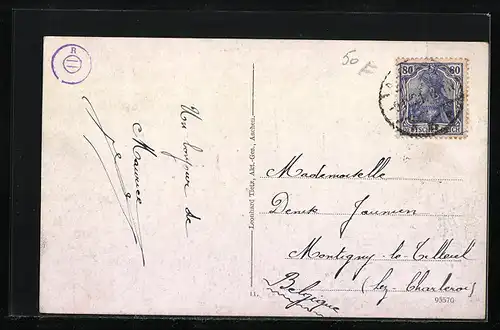 50
E
R
II
Un bonjour de
Maurice
80 80
Leonhard Tietz, Akt.-Ges., Aachen.
Mademoiselle
Denise
Montigny-le-Tilleul
(Lez-Charleroi)
Belgique
11.
93570